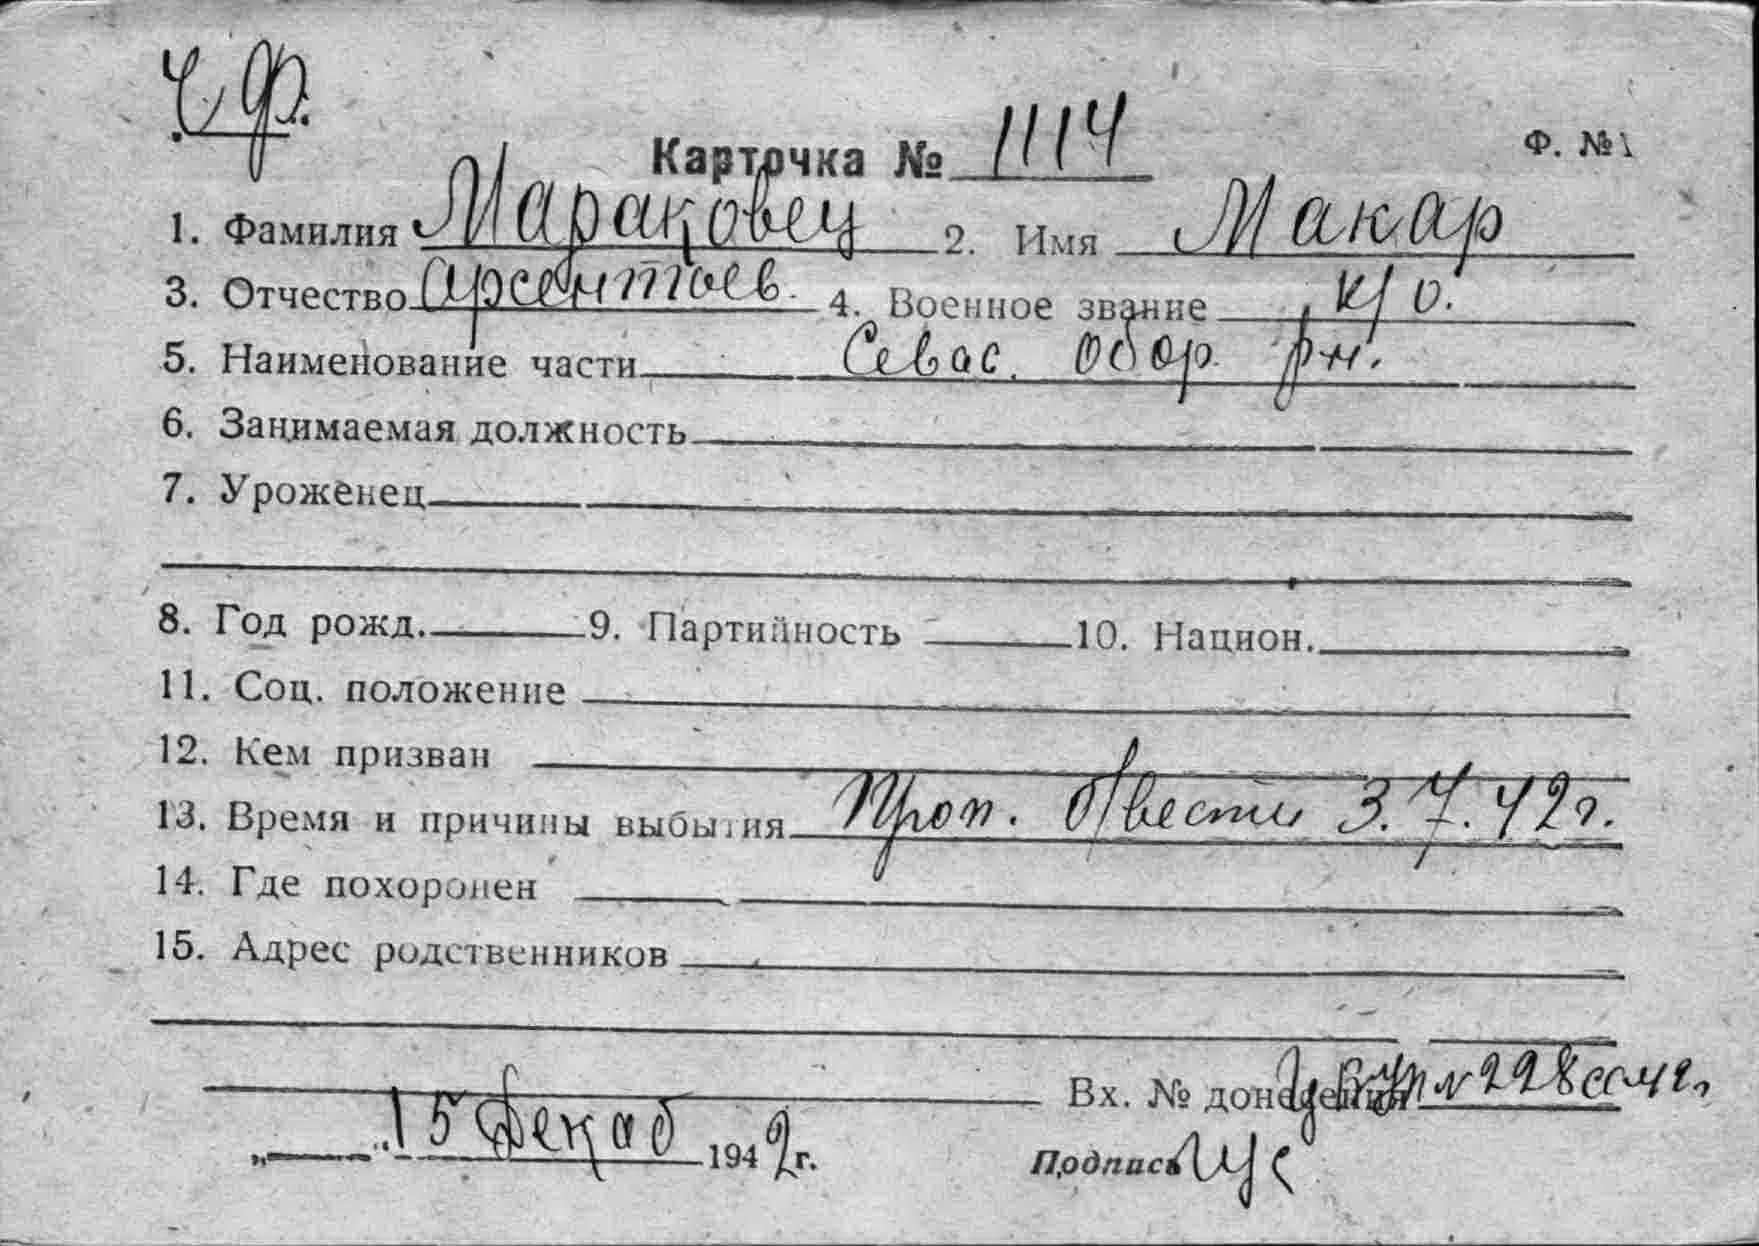 Ч.Ф.
Карточка № 1114 Ф. №1
1. Фамилия Мараковец 2. Имя Макар
3. Отчество Арсентьев. 4. Военное звание к/о.
5. Наименование части Севас. обор. р-н.
6. Занимаемая должность
7. Уроженец
8. Год рожд. 9. Партийность 10. Национ.
11. Соц. положение
12. Кем призван
13. Время и причины выбытия Проп. б/вести 3.7.42г.
14. Где похоронен
15. Адрес родственников
Вх. № донесения № 228сс 42г.
„ “ 15 Декаб 1942г. Подпись